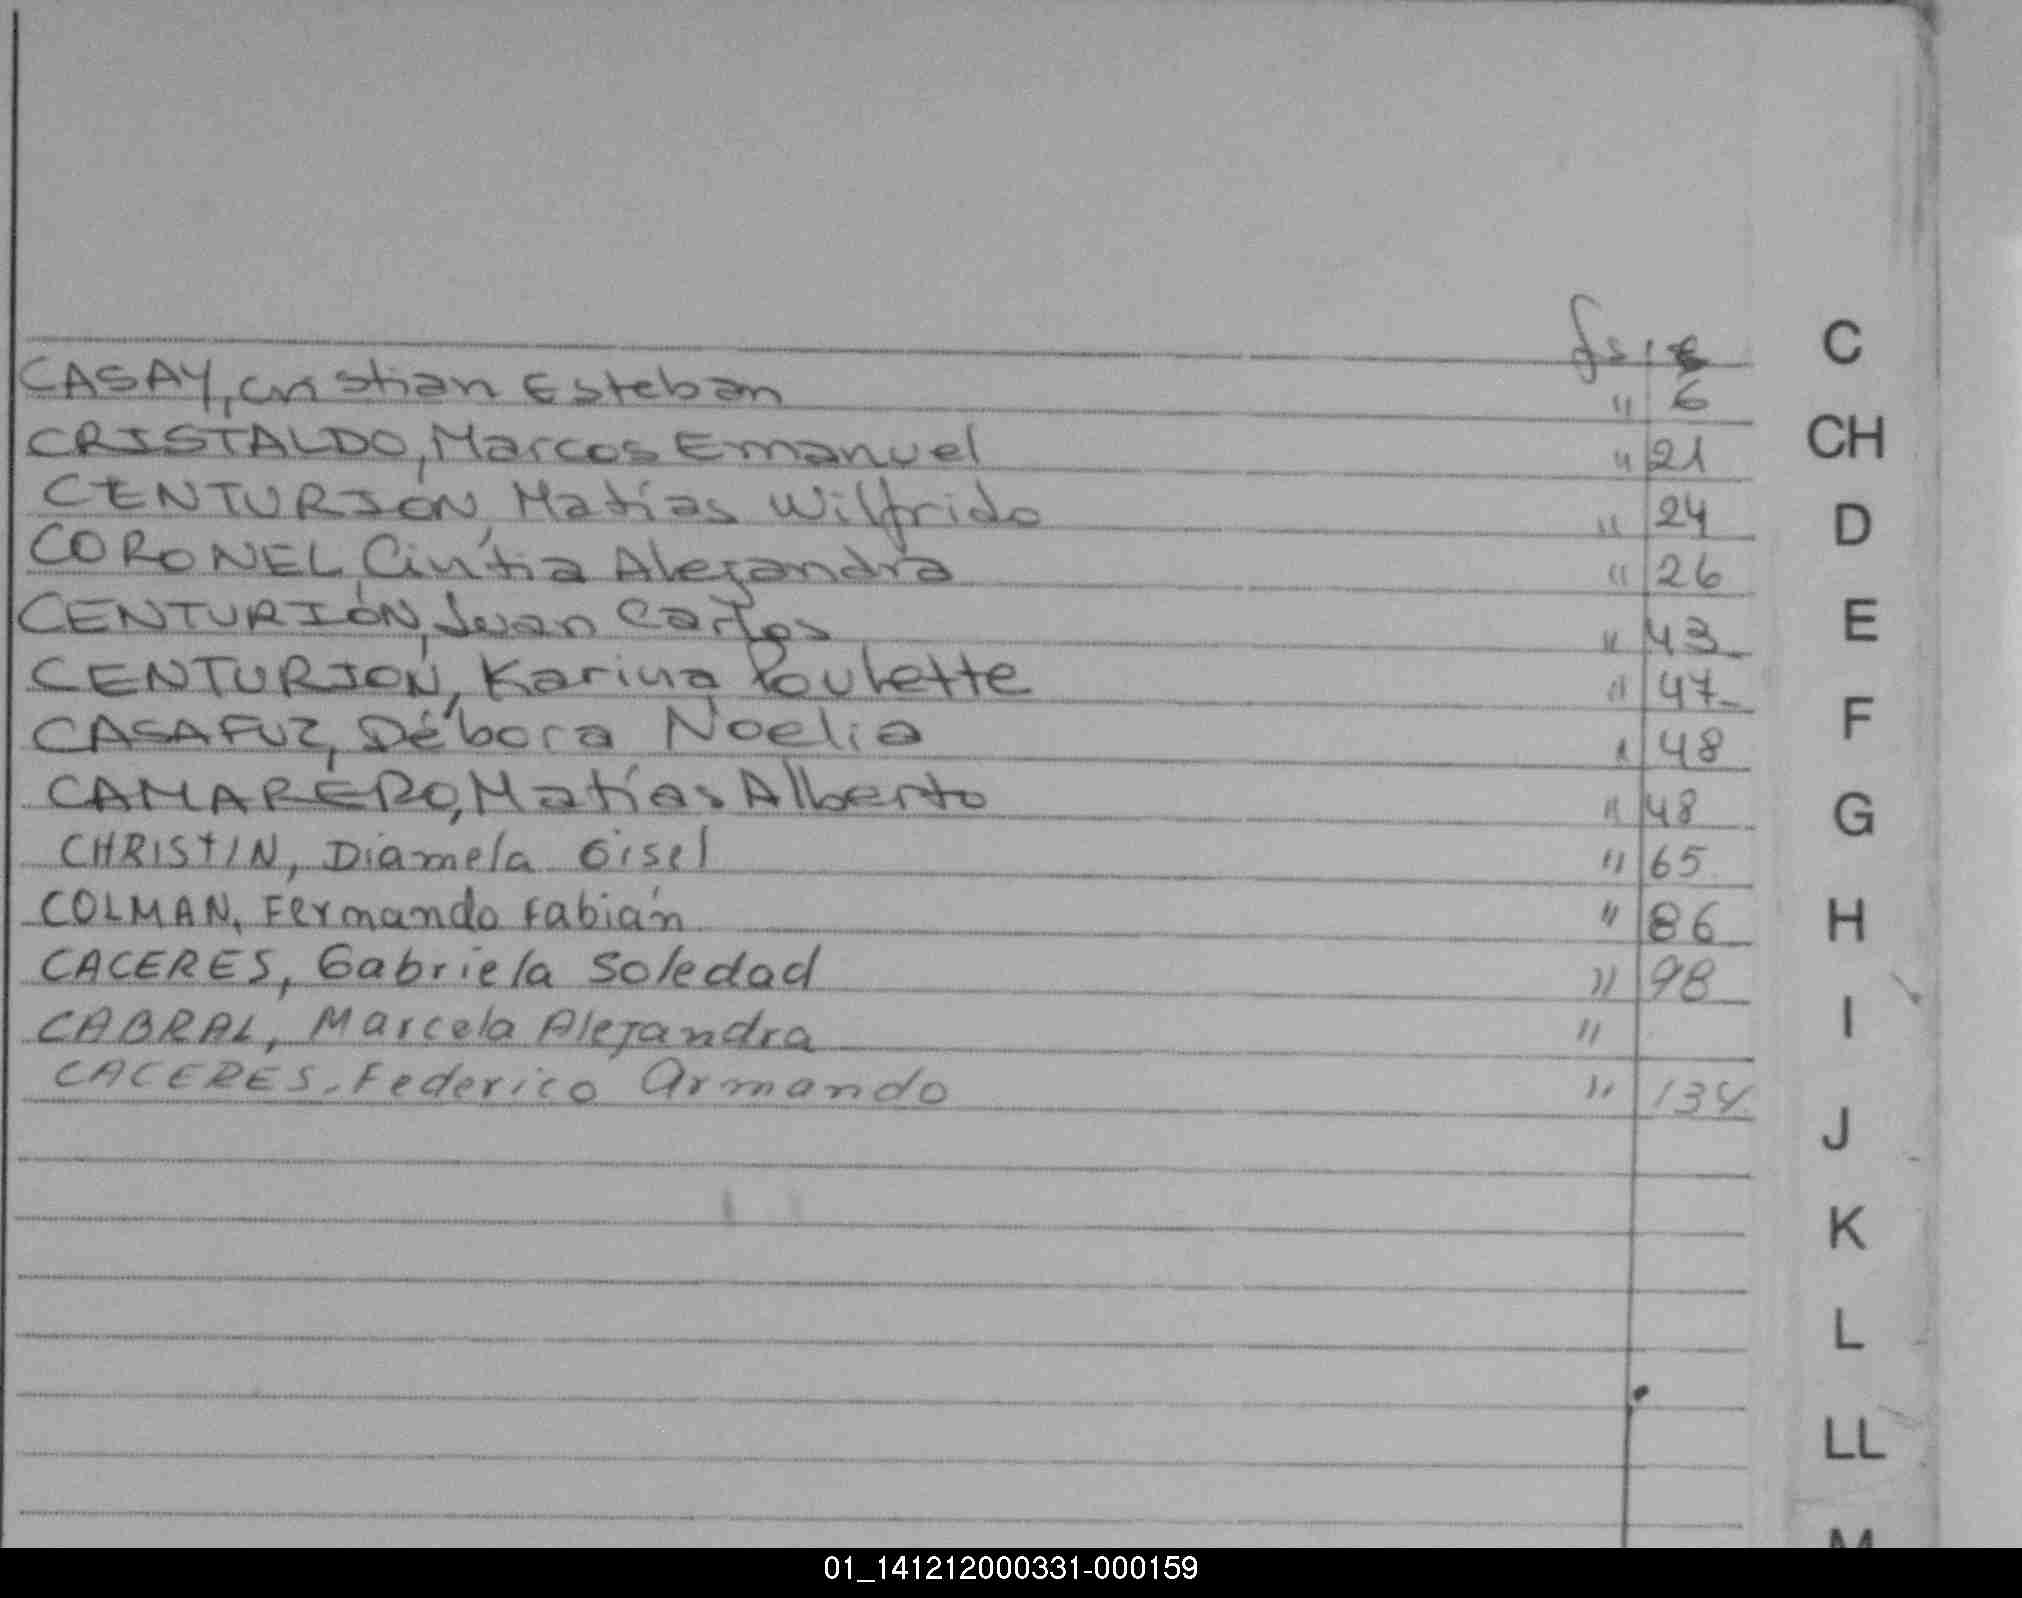 fs. 6
CASAY, Cristian Esteban " 6
CRISTALDO, Marcos Emanuel " 21
CENTURIÓN, Matías Wilfrido " 24
CORONEL, Cintia Alejandra " 26
CENTURIÓN, Juan Carlos " 43
CENTURION, Karina Poulette " 47
CASAFUZ, Débora Noelia " 48
CAMARERO, Matías Alberto " 48
CHRISTIN, Diamela Gisel " 65
COLMAN, Fernando Fabián " 86
CACERES, Gabriela Soledad " 98
CABRAL, Marcela Alejandra "
CACERES, Federico Armando " 134
C
CH
D
E
F
G
H
I
J
K
L
LL
M
01_141212000331-000159